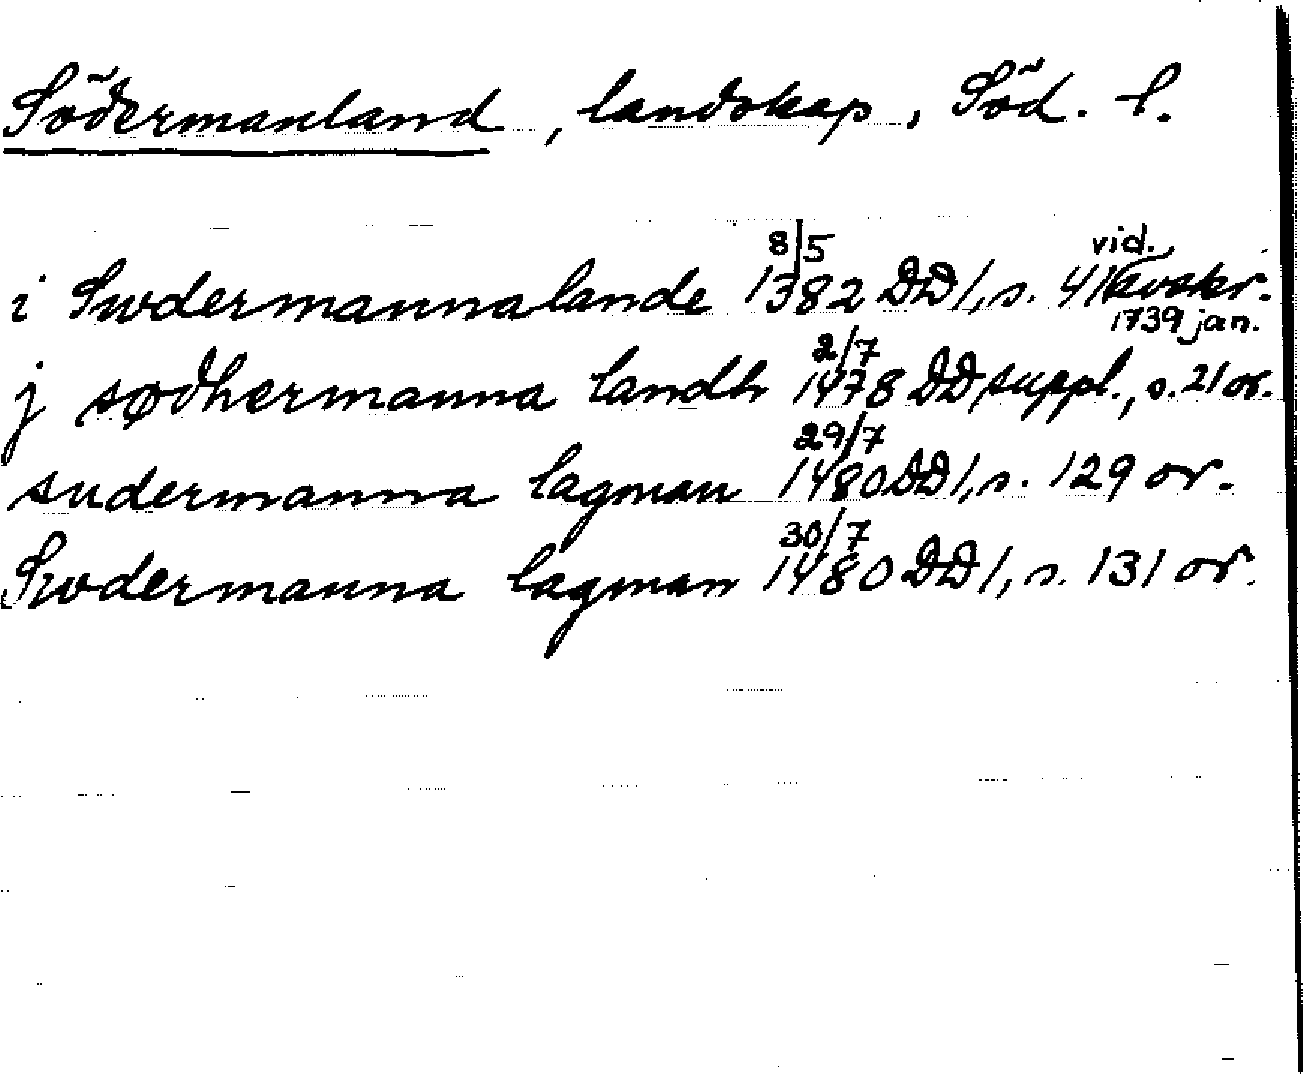 Södermanland, landskap, Söd. l.
i Swdermannalande 8/5 1382 DD 1, s. 41 vid. avskr. 1739 jan.
j sødhermanna landh 2/7 1478 DD suppl., s. 21 or.
sudermanna lagman 29/7 1480 DD 1, s. 129 or.
Swdermanna lagman 30/7 1480 DD 1, s. 131 or.